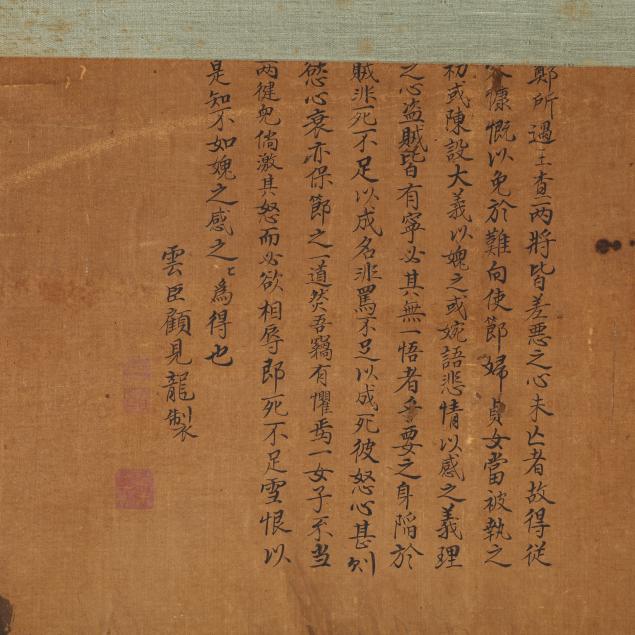 鄭所過王查两將皆差悪之心未亡者故得従
容慷慨以免於難向使節婦貞女當被執之
初或陳設大義以媿之或婉語悲情以感之義理
之心盗賊皆有寧必其無一悟者乎要之身陥於
賊非死不足以成名非罵不足以成死彼怒心甚則
慾心衰亦保節之一道焚吾竊有懼焉一女子不当
两健兒倘激其怒而必欲相辱即死不足雪恨以
是知不如婉之感之〻為得也
雲臣顧見龍製